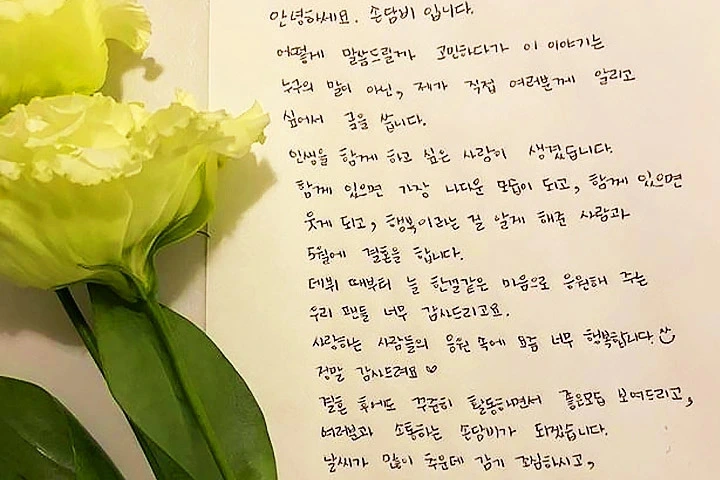 안녕하세요. 손담비 입니다.
어떻게 말씀드릴까 고민하다가 이 이야기는
누구의 말이 아닌, 제가 직접 여러분께 알리고
싶어서 글을 씁니다.
인생을 함께 하고 싶은 사람이 생겼답니다.
함께 있으면 가장 나다운 모습이 되고, 함께 있으면
웃게 되고, 행복이라는 걸 알게 해준 사람과
5월에 결혼을 합니다.
데뷔 때부터 늘 한결같은 마음으로 응원해 주는
우리 팬들 너무 감사드리고요.
사랑하는 사람들의 응원 속에 요즘 너무 행복합니다.
정말 감사드려요 ♡
결혼 후에도 꾸준히 활동하면서 좋은모습 보여드리고,
여러분과 소통하는 손담비가 되겠습니다.
날씨가 많이 추운데 감기 조심하시고,